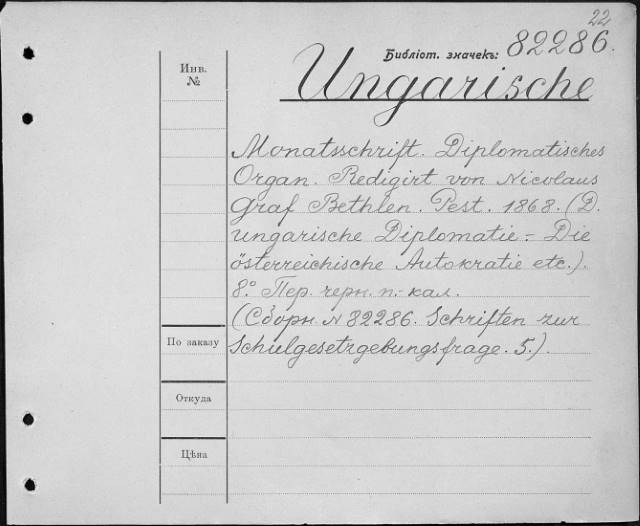 22
Библіот. значекъ: 82286.
Инв. №
Ungarische
Monatsschrift. Diplomatisches
Organ. Redigirt von Nicolaus
Graf Bethlen. Pest. 1868. (D.
ungarische Diplomatie. - Die
österreichische Autokratie etc.).
8° Пер. черн. п.- кал.
(Сборн. № 82286. Schriften zur
Schulgesetzgebungsfrage. 5.).
По заказу
Откуда
Цѣна